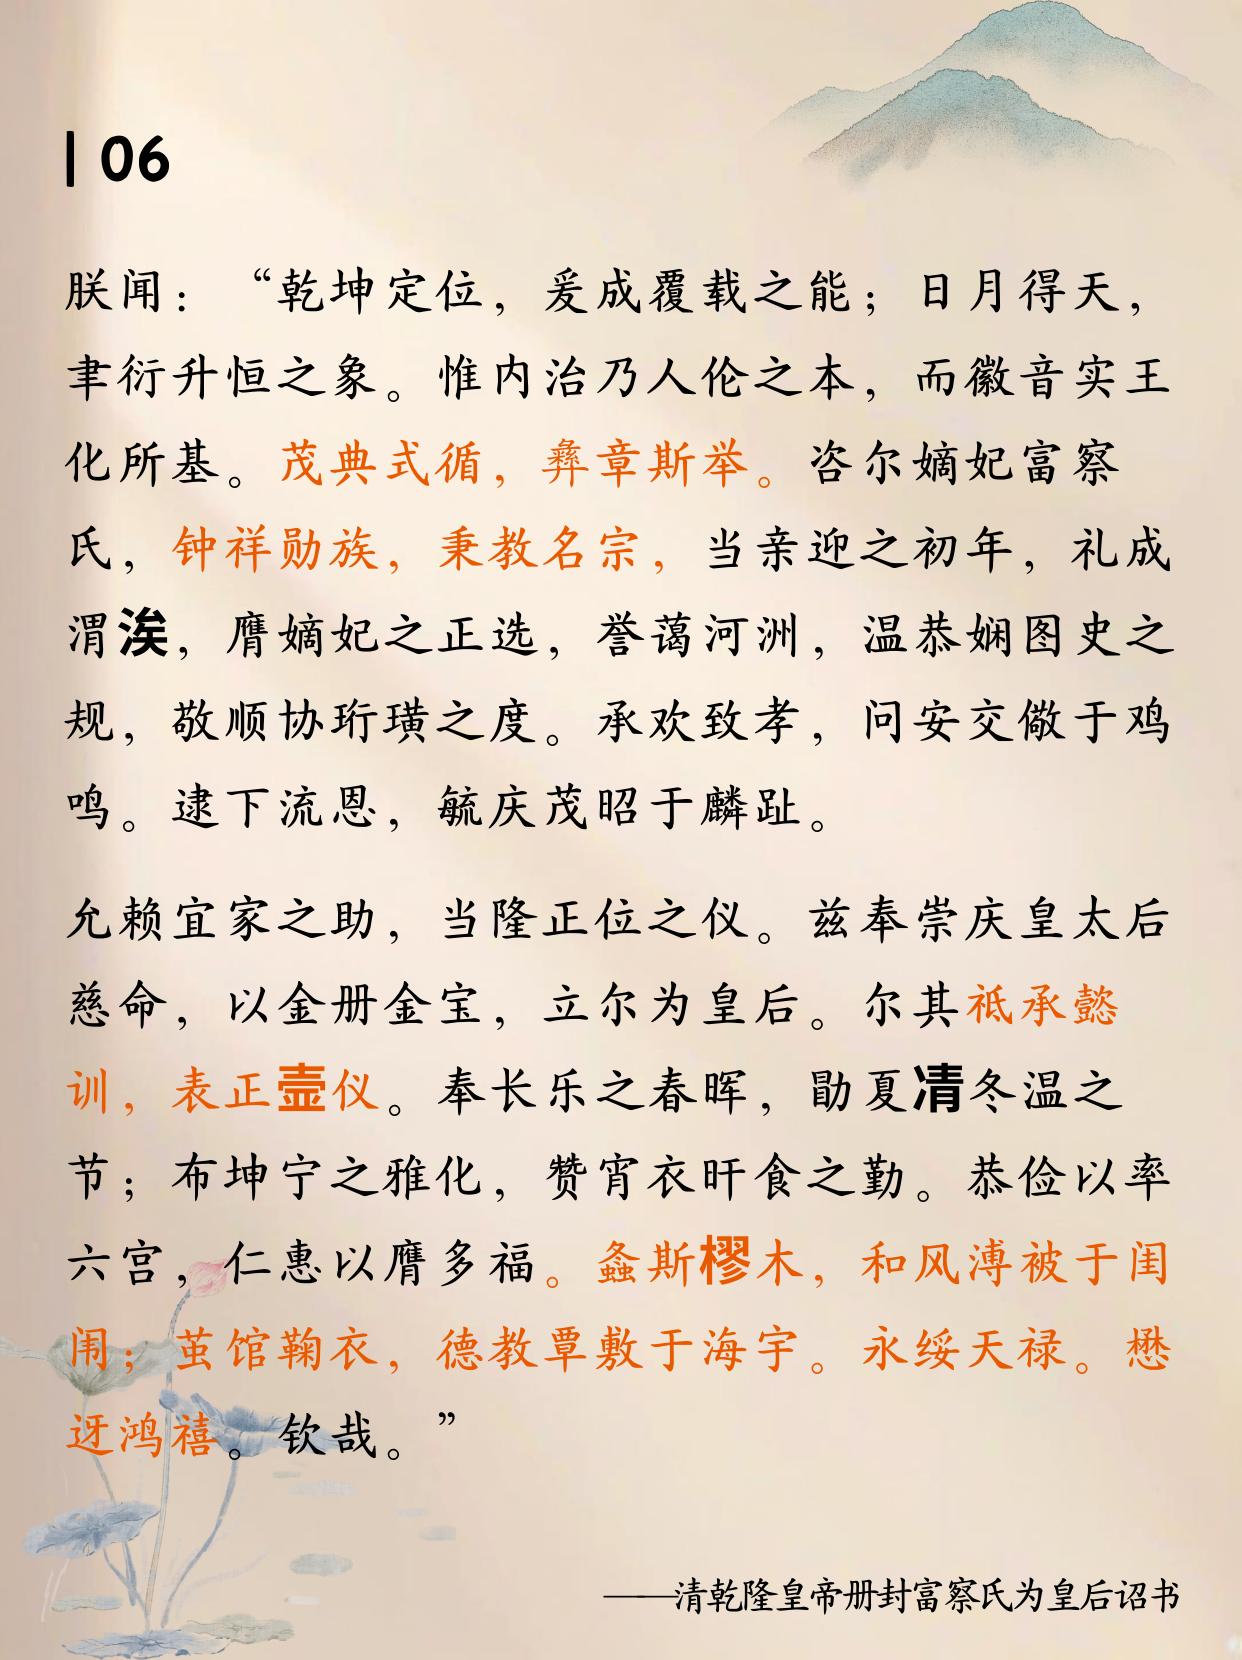 06
朕闻：“乾坤定位，爰成覆载之能；日月得天，
聿衍升恒之象。惟内治乃人伦之本，而徽音实王
化所基。茂典式循，彝章斯举。咨尔嫡妃富察
氏，钟祥勋族，秉教名宗，当亲迎之初年，礼成
渭涘，膺嫡妃之正选，誉蔼河洲，温恭娴图史之
规，敬顺协珩璜之度。承欢致孝，问安交儆于鸡
鸣。逮下流恩，毓庆茂昭于麟趾。
允赖宜家之助，当隆正位之仪。兹奉崇庆皇太后
慈命，以金册金宝，立尔为皇后。尔其祗承懿
训，表正壸仪。奉长乐之春晖，勖夏凊冬温之
节；布坤宁之雅化，赞宵衣旰食之勤。恭俭以率
六宫，仁惠以膺多福。螽斯樛木，和风溥被于闺
闱；茧馆鞠衣，德教覃敷于海宇。永绥天禄。懋
迓鸿禧。钦哉。”
——清乾隆皇帝册封富察氏为皇后诏书